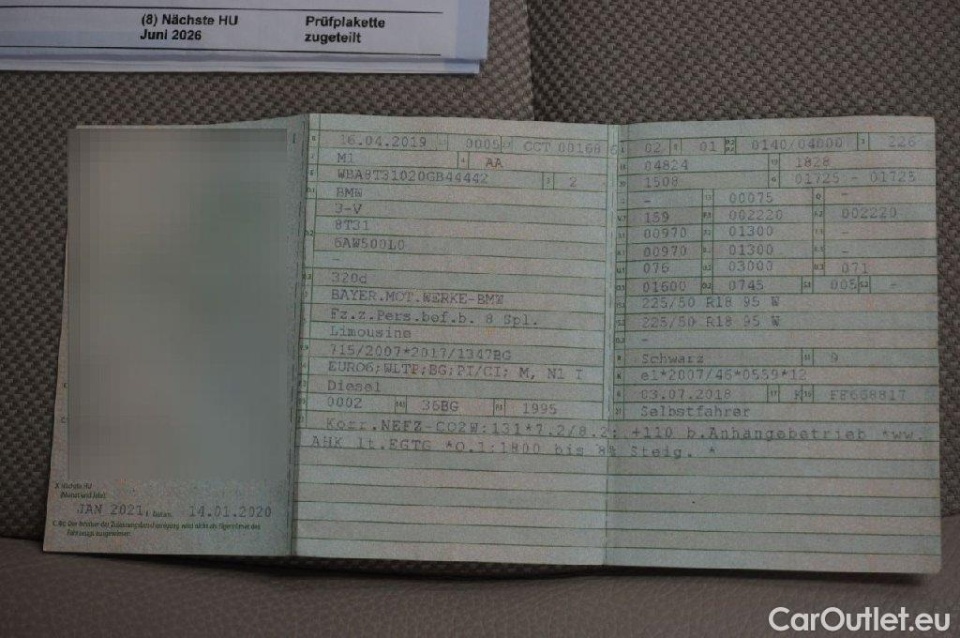 (8) Nächste HU Prüfplakette
Juni 2026 zugeteilt
16.04.2019 0005 CCT 00168 6
M1 AA
WBA8T31020GB44442 2
BMW
3-V
8T31
6AW500L0
-
320d
BAYER.MOT.WERKE-BMW
Fz.z.Pers.bef.b. 8 Spl.
Limousine
715/2007*2017/1347BG
EURO6;WLTP;BG;PI/CI; M, N1 I
Diesel
0002 36BG 1995
02 01 0140/04000 226
04824 1828
1508 01725 - 01725
- 00075 -
159 002220 002220
00970 01300 -
00970 01300 -
076 03000 071
01600 0745 005 -
225/50 R18 95 W
225/50 R18 95 W
-
Schwarz 9
e1*2007/46*0559*12
03.07.2018 K FF668817
Selbstfahrer
Korr.NEFZ-CO2W:131*7.2/8.2: +110 b.Anhängebetrieb *ww.
AHK lt.EGTG *O.1:1800 bis 8% Steig. *
X Nächste HU
JAN 2021, Datum: 14.01.2020
C.4c: Der Inhaber der Zulassungsbescheinigung wird nicht als Eigentümer des
Fahrzeugs ausgewiesen.
CarOutlet.eu